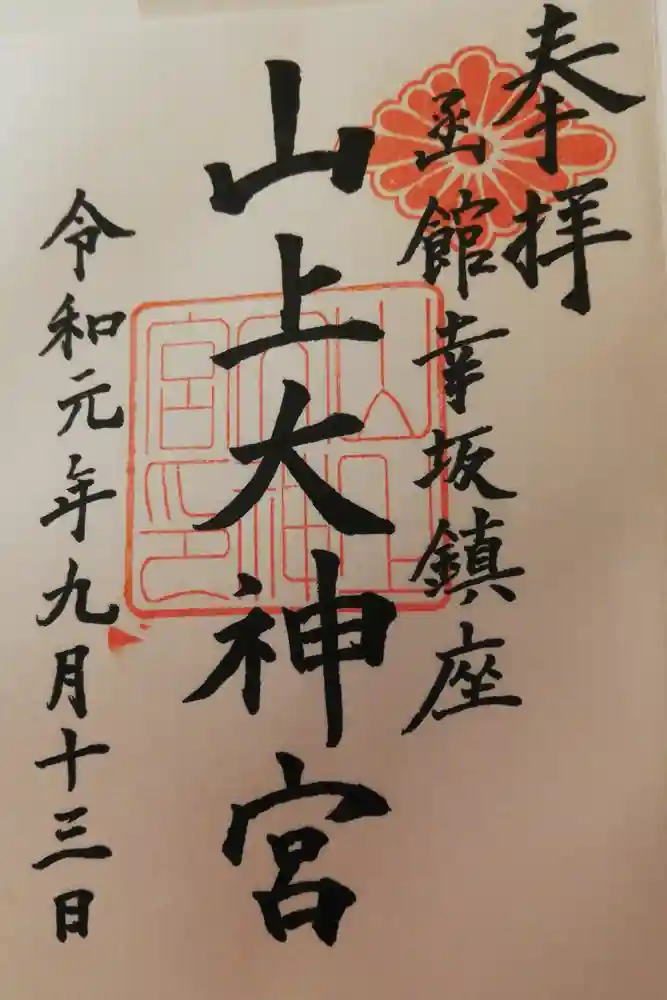 奉拝
函館幸坂鎮座
山上大神宮
令和元年九月十三日
山上大神宮之印